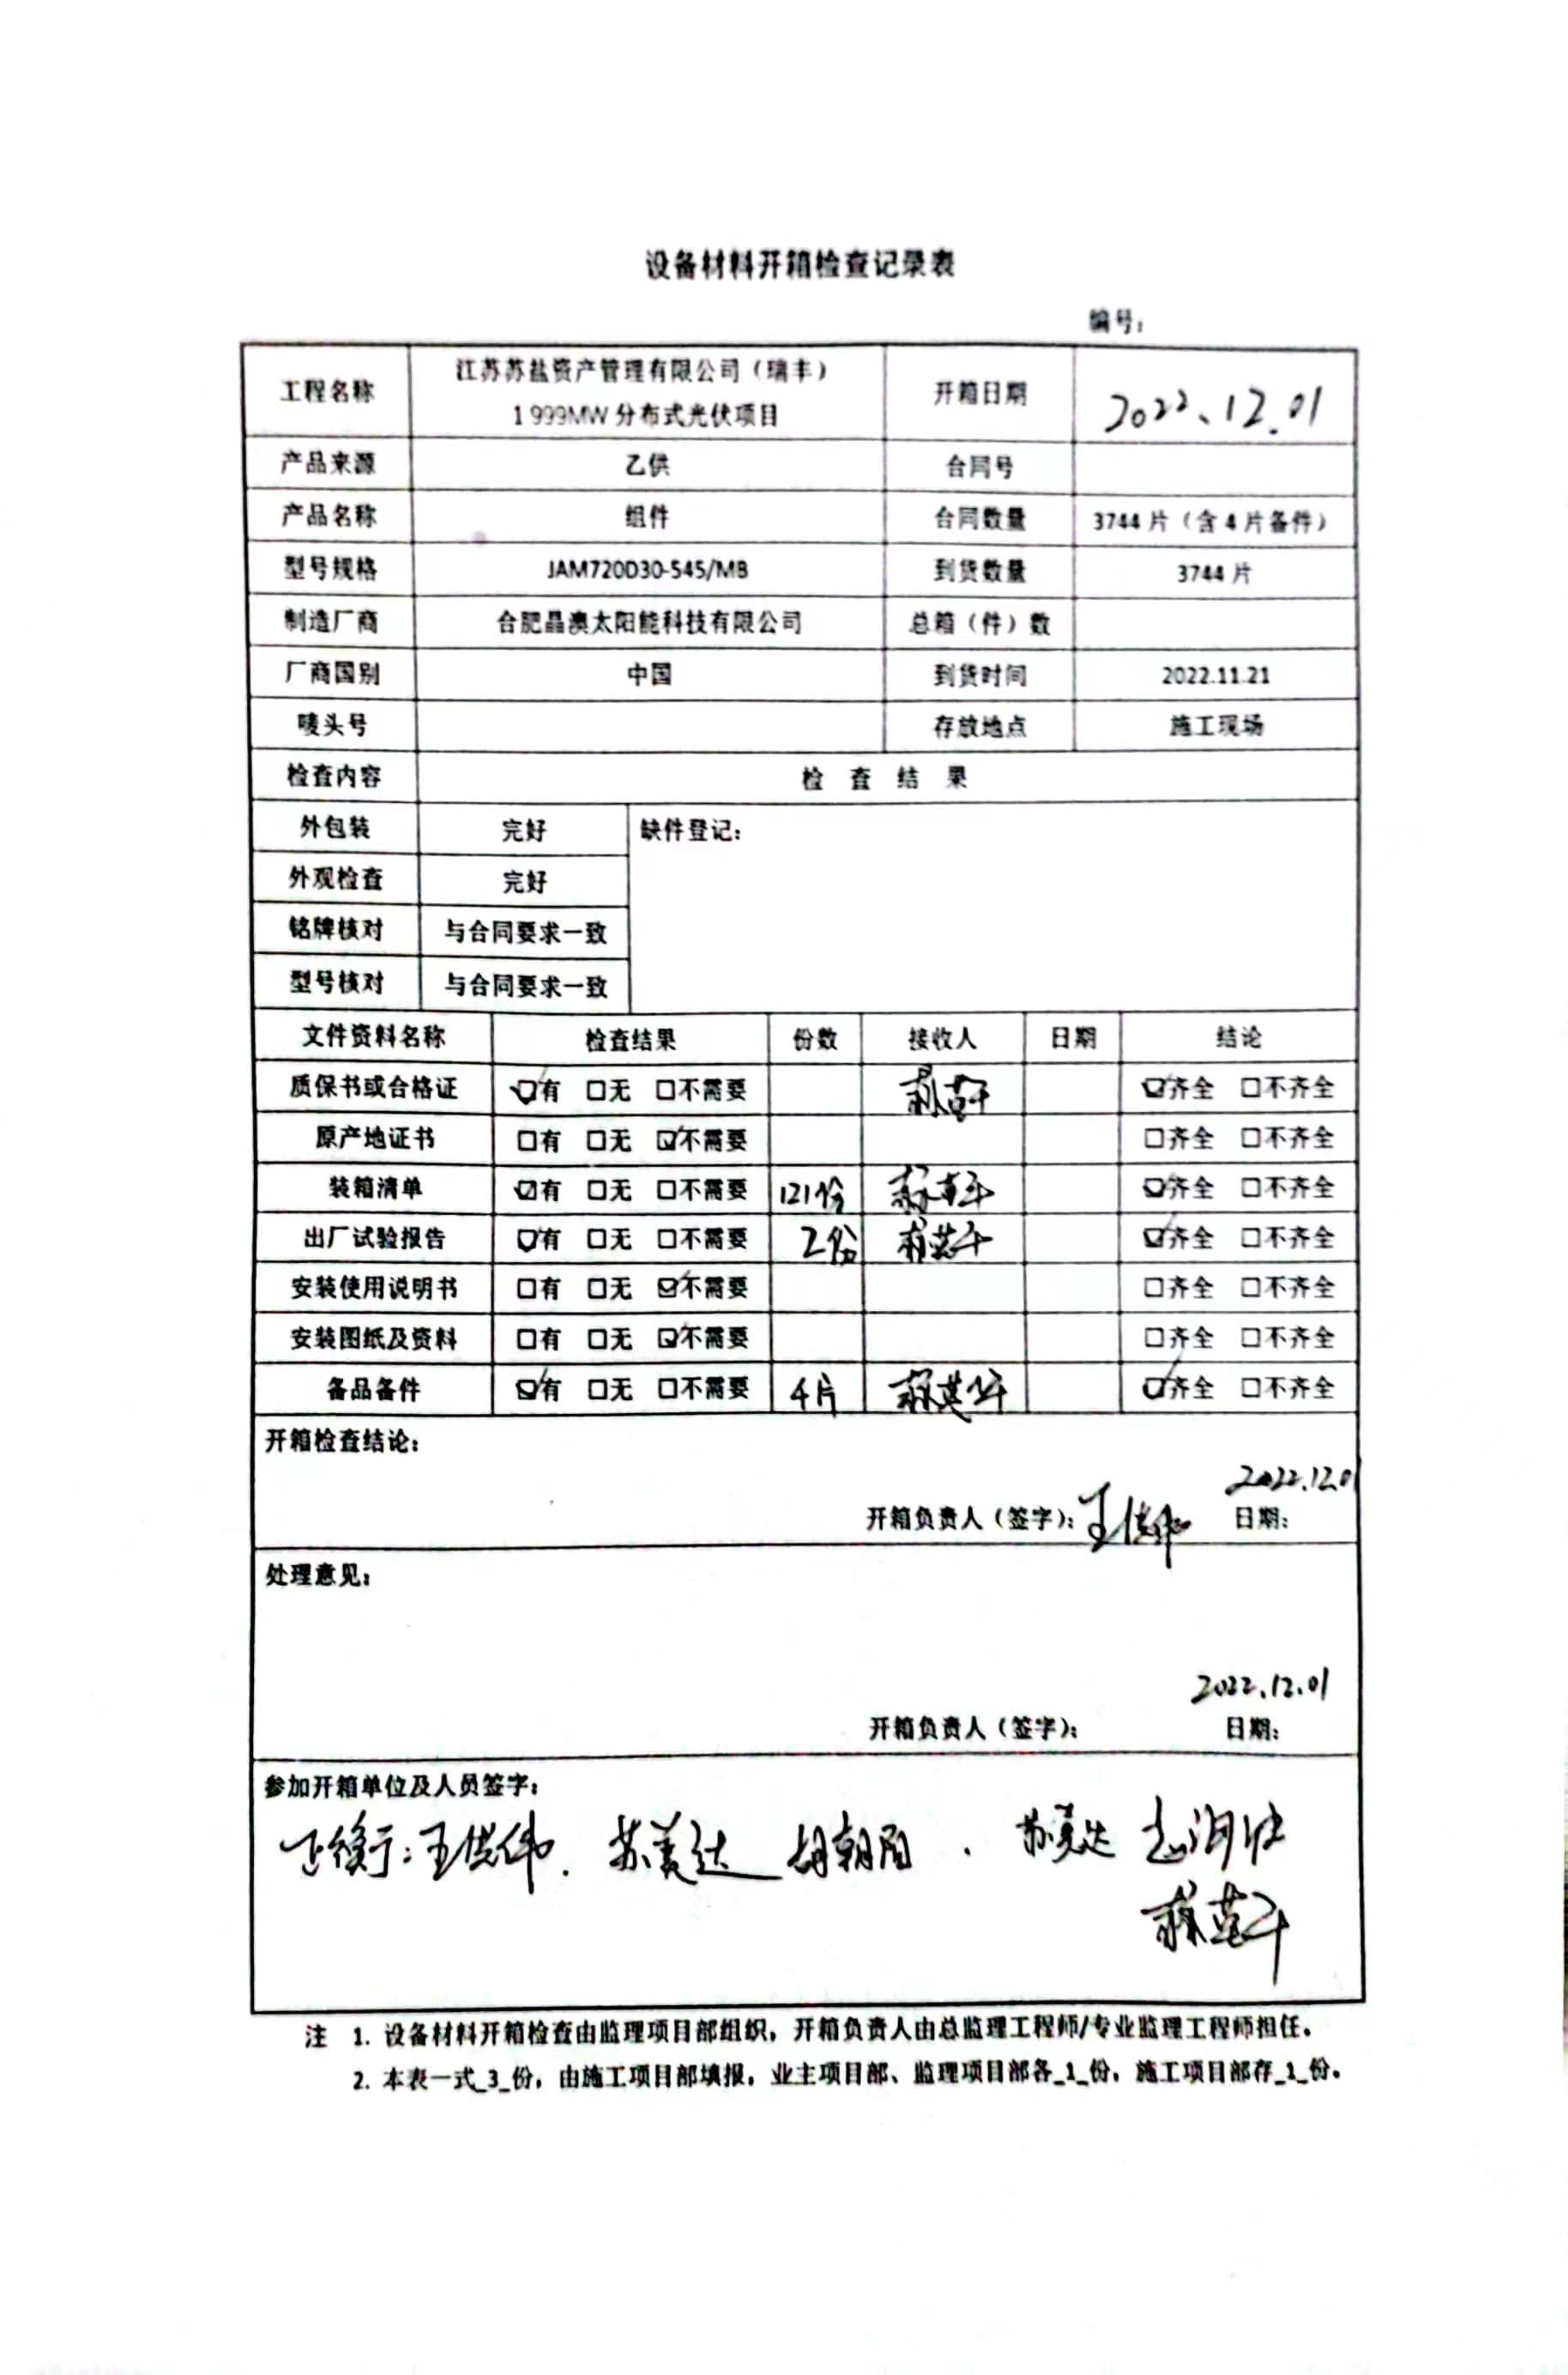 设备材料开箱检查记录表
编号:
工程名称 江苏苏盐资产管理有限公司（瑞丰）1 999MW 分布式光伏项目 开箱日期 2022.12.01
产品来源 乙供 合同号
产品名称 组件 合同数量 3744 片（含 4 片备件）
型号规格 JAM720D30-545/MB 到货数量 3744 片
制造厂商 合肥晶澳太阳能科技有限公司 总箱（件）数
厂商国别 中国 到货时间 2022.11.21
唛头号 存放地点 施工现场
检查内容 检 查 结 果
外包装 完好 缺件登记:
外观检查 完好
铭牌核对 与合同要求一致
型号核对 与合同要求一致
文件资料名称 检查结果 份数 接收人 日期 结论
质保书或合格证 ☑有 □无 □不需要 ☑齐全 □不齐全
原产地证书 □有 □无 ☑不需要 □齐全 □不齐全
装箱清单 ☑有 □无 □不需要 121份 ☑齐全 □不齐全
出厂试验报告 ☑有 □无 □不需要 2份 ☑齐全 □不齐全
安装使用说明书 □有 □无 ☑不需要 □齐全 □不齐全
安装图纸及资料 □有 □无 ☑不需要 □齐全 □不齐全
备品备件 ☑有 □无 □不需要 4片 ☑齐全 □不齐全
开箱检查结论:
2022.12.01
开箱负责人（签字）: 日期:
处理意见:
2022.12.01
开箱负责人（签字）: 日期:
参加开箱单位及人员签字:
苏美达 苏美达
注 1. 设备材料开箱检查由监理项目部组织，开箱负责人由总监理工程师/专业监理工程师担任。
2. 本表一式_3_份，由施工项目部填报，业主项目部、监理项目部各_1_份，施工项目部存_1_份。